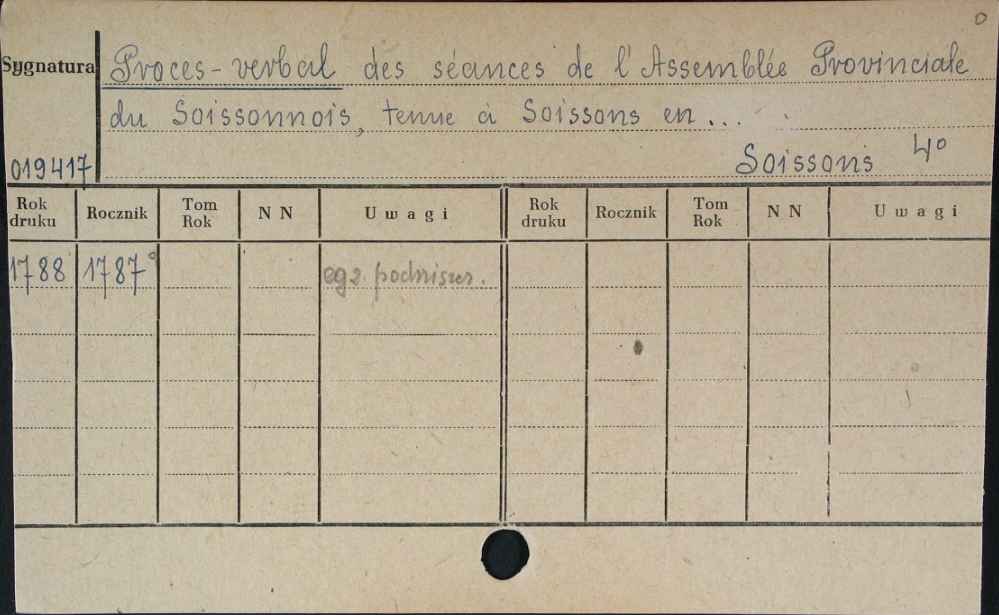 0
Sygnatura Proces-verbal des séances de l'Assemblée Provinciale
du Soissonnois, tenue à Soissons en ...
019417 Soissons 4º
Rok druku Rocznik Tom Rok NN Uwagi Rok druku Rocznik Tom Rok NN Uwagi
1788 1787 egz. podniszcz.